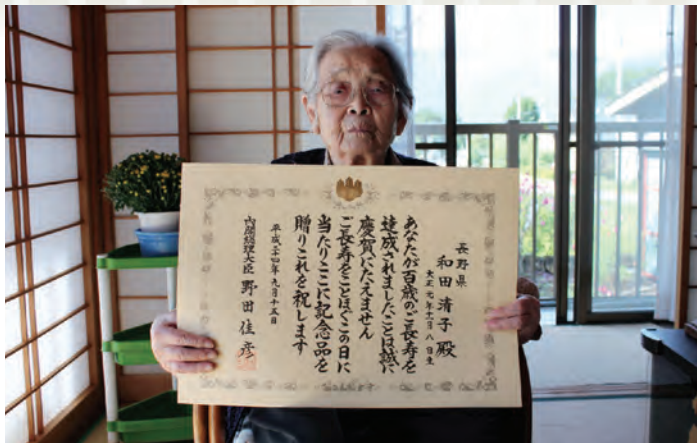 長野県
和田清子殿
大正元年十一月八日生
あなたが百歳のご長寿を
達成されましたことは誠に
慶賀にたえません
ご長寿をことほぐこの日に
当たりここに記念品を
贈りこれを祝します
平成二十四年九月十五日
内閣総理大臣 野田佳彦